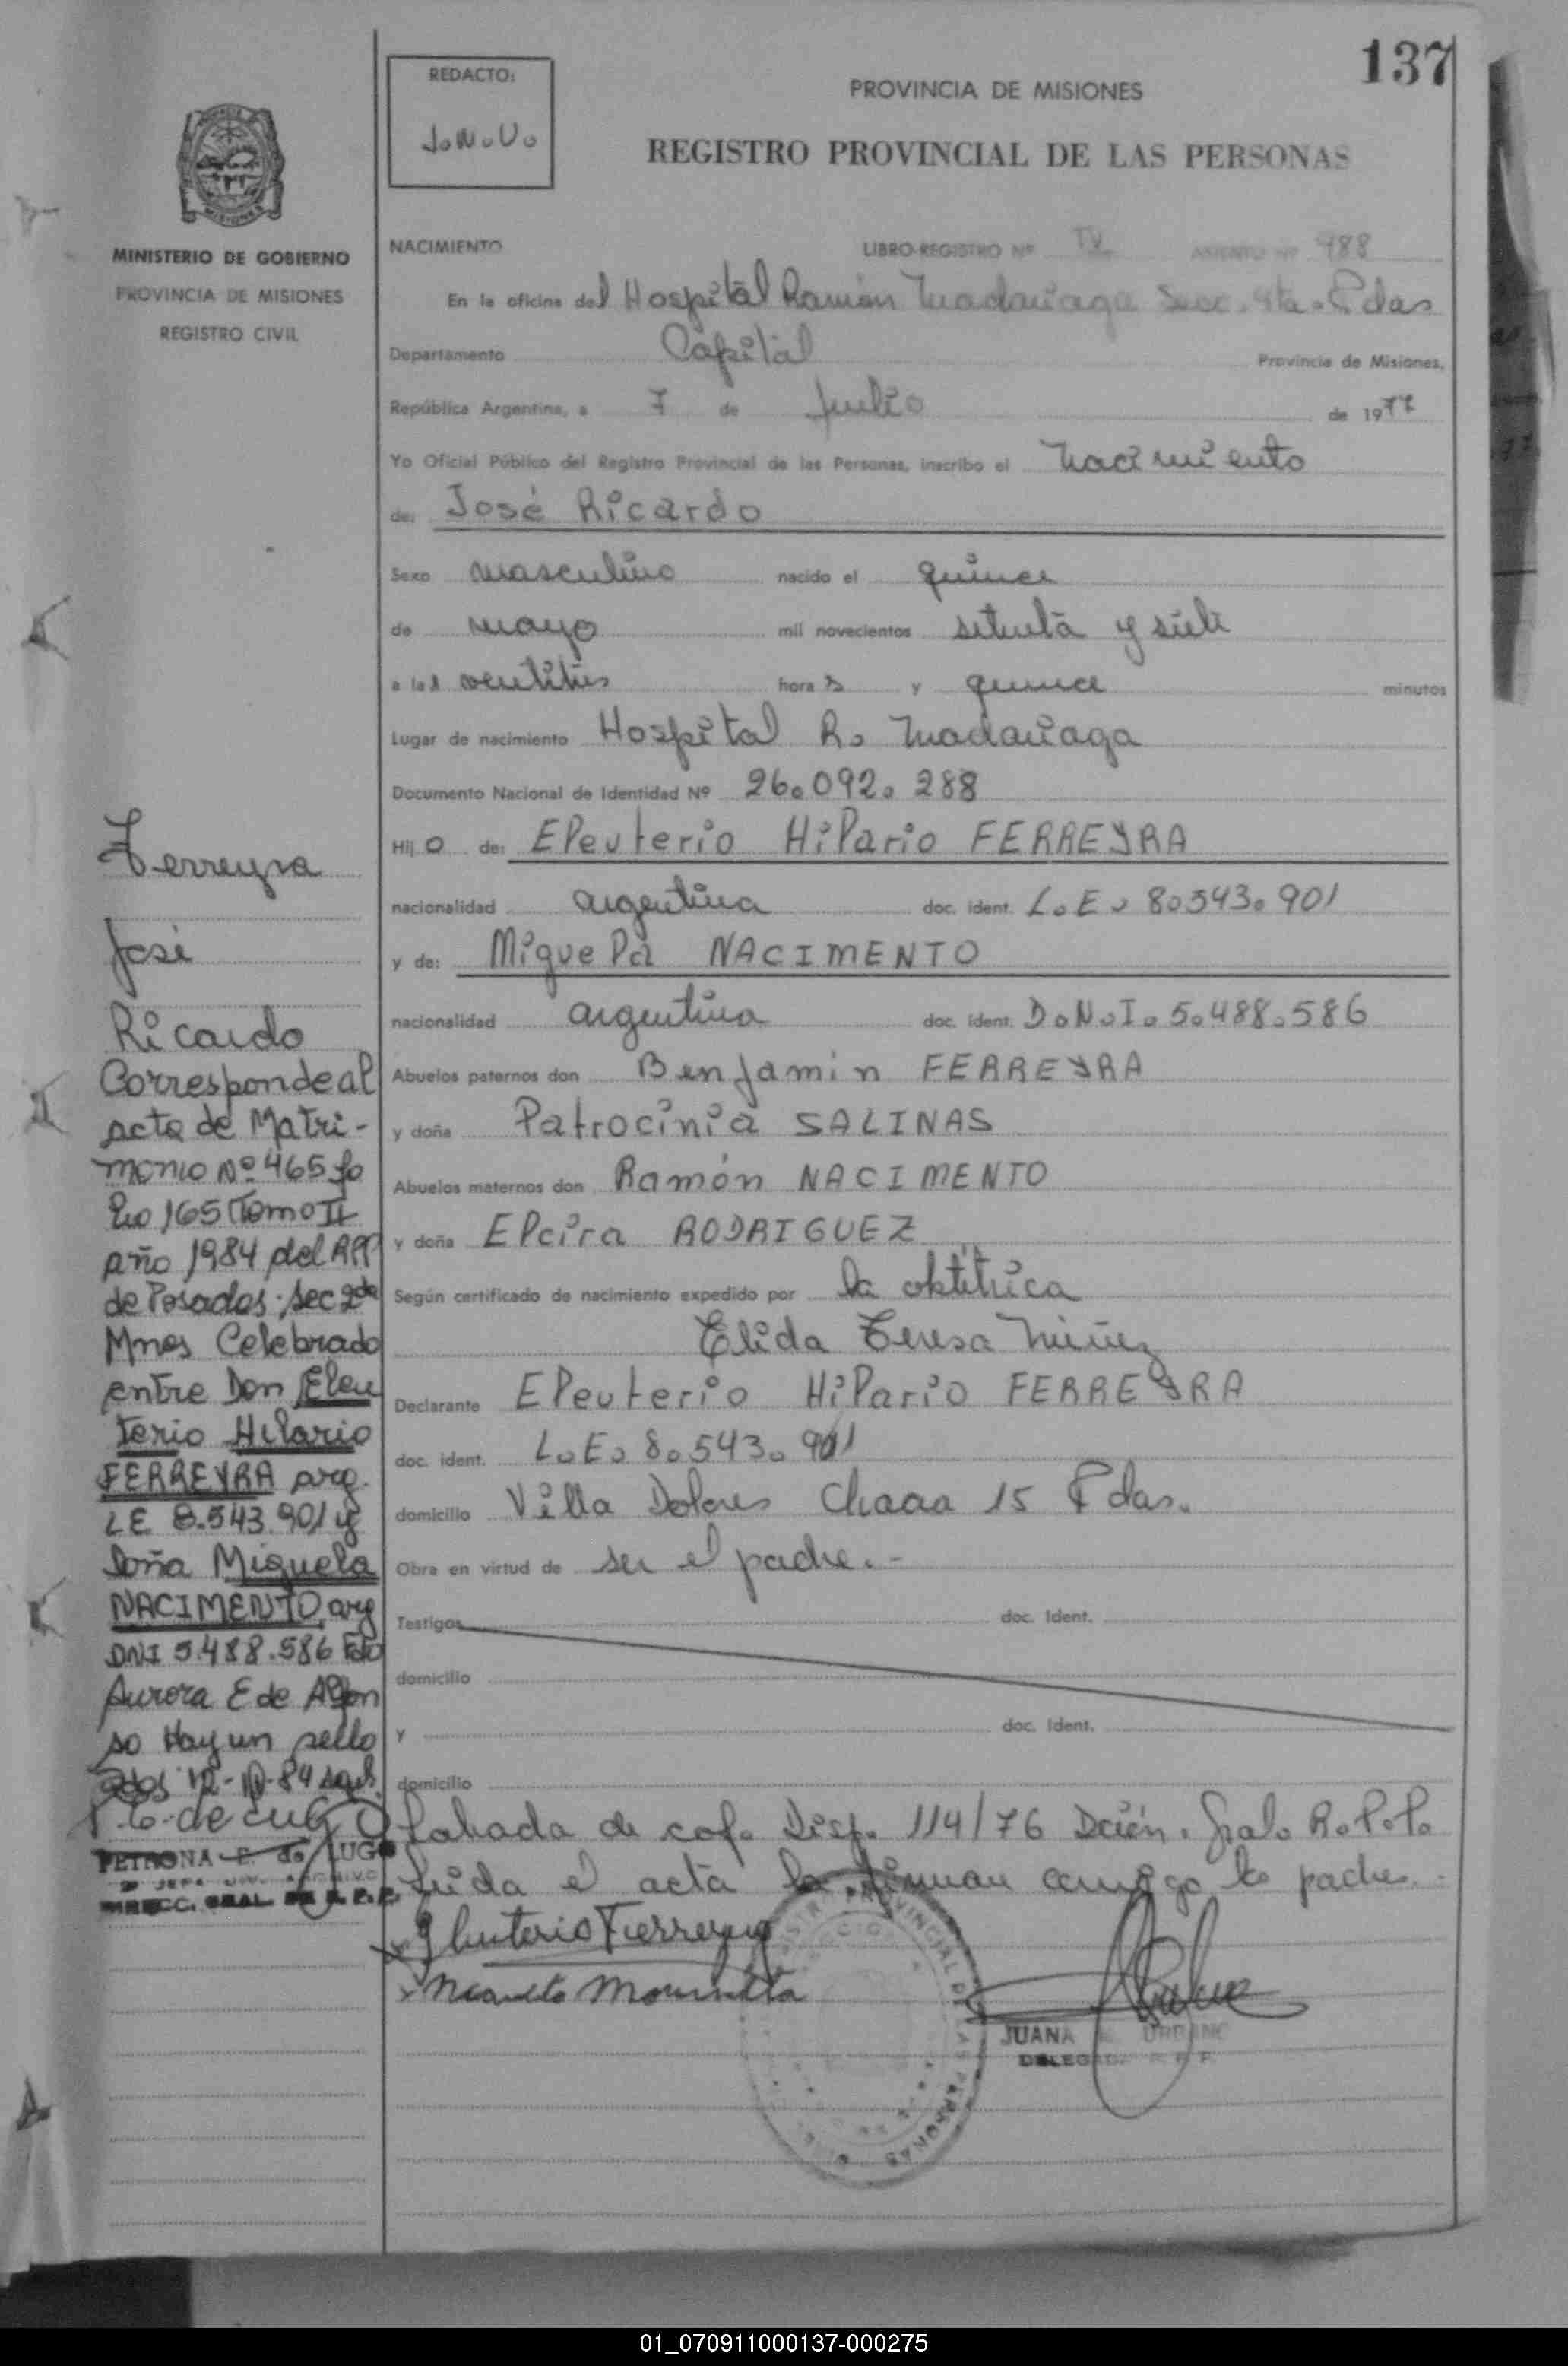 137
REDACTO:
J.N.U.
PROVINCIA DE MISIONES
REGISTRO PROVINCIAL DE LAS PERSONAS
MISIONES
MINISTERIO DE GOBIERNO
PROVINCIA DE MISIONES
REGISTRO CIVIL
NACIMIENTO LIBRO-REGISTRO Nº IV ASIENTO Nº 988
En la oficina del Hospital Ramón Madariaga Secc. 4ta. Pdas
Departamento Capital Provincia de Misiones,
República Argentina, a 7 de Julio de 1977
Yo Oficial Público del Registro Provincial de las Personas, inscribo el nacimiento
de: José Ricardo
Sexo masculino nacido el quince
de mayo mil novecientos setenta y siete
a las ventitres horas y quince minutos
Lugar de nacimiento Hospital R. Madariaga
Documento Nacional de Identidad Nº 26.092.288
Hijo de: Eleuterio Hilario FERREYRA
nacionalidad argentina doc. ident. L.E. 8.543.901
y de: Miguela NACIMENTO
nacionalidad argentina doc. ident. D.N.I. 5.488.586
Abuelos paternos don Benjamin FERREYRA
y doña Patrocinia SALINAS
Abuelos maternos don Ramón NACIMENTO
y doña Elcira RODRIGUEZ
Según certificado de nacimiento expedido por la obstétrica
Elida Teresa Núñez
Declarante Eleuterio Hilario FERREYRA
doc. ident. L.E. 8.543.901
domicilio Villa Dolores Chacra 15 Pdas.
Obra en virtud de ser el padre.-
Testigos doc. Ident.
domicilio
y doc. Ident.
domicilio
de cof. Disp. 114/76 Dción. Gral. R.P.P.
leida el acta la firman conmigo los padres.-
Eleuterio Ferreyra
JUANA URBANO
DELEGADA R.P.P.
Ferreyra
José
Ricardo
Corresponde al
acta de Matri-
monio Nº 465 fo
lio 165 Tomo II
año 1984 del RPP
de Posadas. Sec 2da
Mnes Celebrado
entre Don Eleu
terio Hilario
FERREYRA arg.
LE 8.543.901 y
Doña Miguela
NACIMENTO, arg
DNI 5.488.586 Fdo
Aurora E de Alfon
so Hay un sello
Pdas 12-10-84
P.E. de Lugo
PETRONA E. de LUGO
JEFA DIV. ARCHIVO
DIRECC. GRAL. DE R.P.P.
01_070911000137-000275